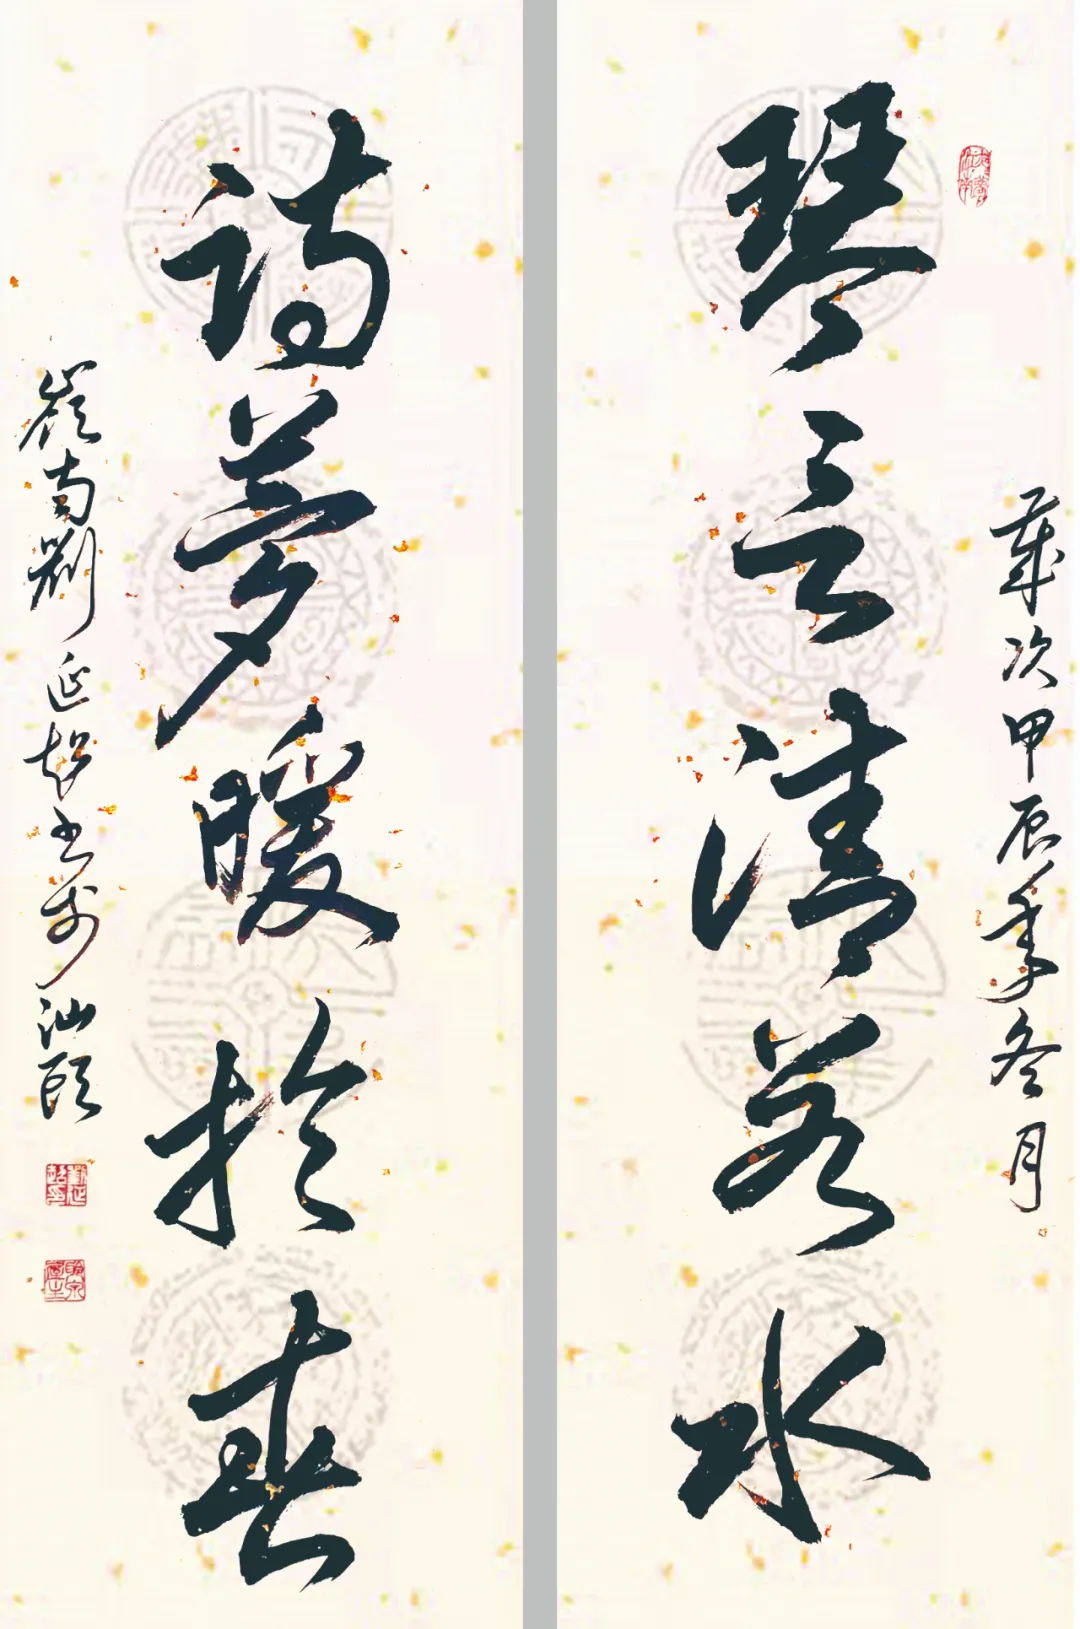 歲次甲辰年冬月
琴言清若水
詩夢暖於春
嶺南劉延超書於汕頭